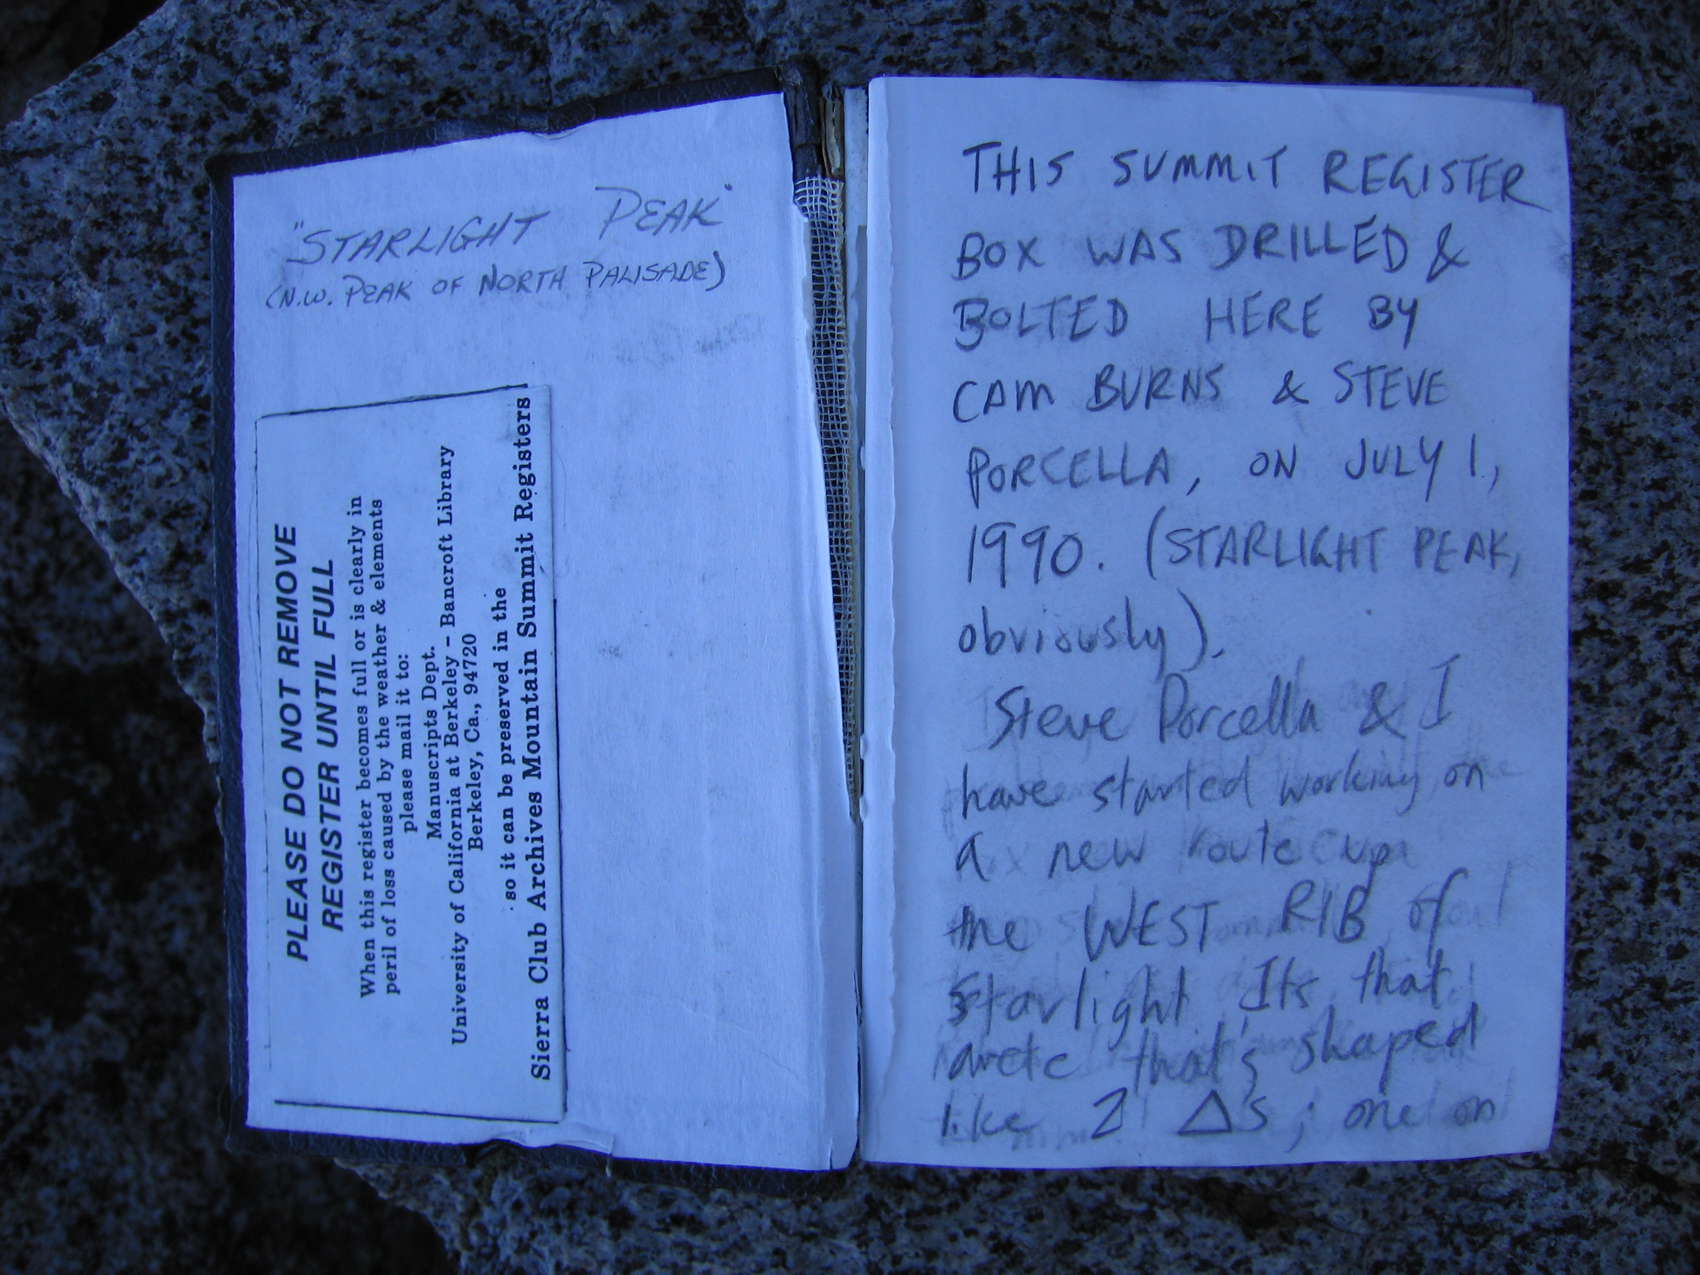 "STARLIGHT PEAK"
(N.W. PEAK OF NORTH PALISADE)
PLEASE DO NOT REMOVE
REGISTER UNTIL FULL
When this register becomes full or is clearly in
peril of loss caused by the weather & elements
please mail it to:
Manuscripts Dept.
University of California at Berkeley – Bancroft Library
Berkeley, Ca., 94720
so it can be preserved in the
Sierra Club Archives Mountain Summit Registers
THIS SUMMIT REGISTER
BOX WAS DRILLED &
BOLTED HERE BY
CAM BURNS & STEVE
PORCELLA, ON JULY 1,
1990. (STARLIGHT PEAK,
obviously).
Steve Porcella & I
have started working on
a new route up
the WEST RIB of
Starlight Its that
arete that's shaped
like 2 Δs; one on